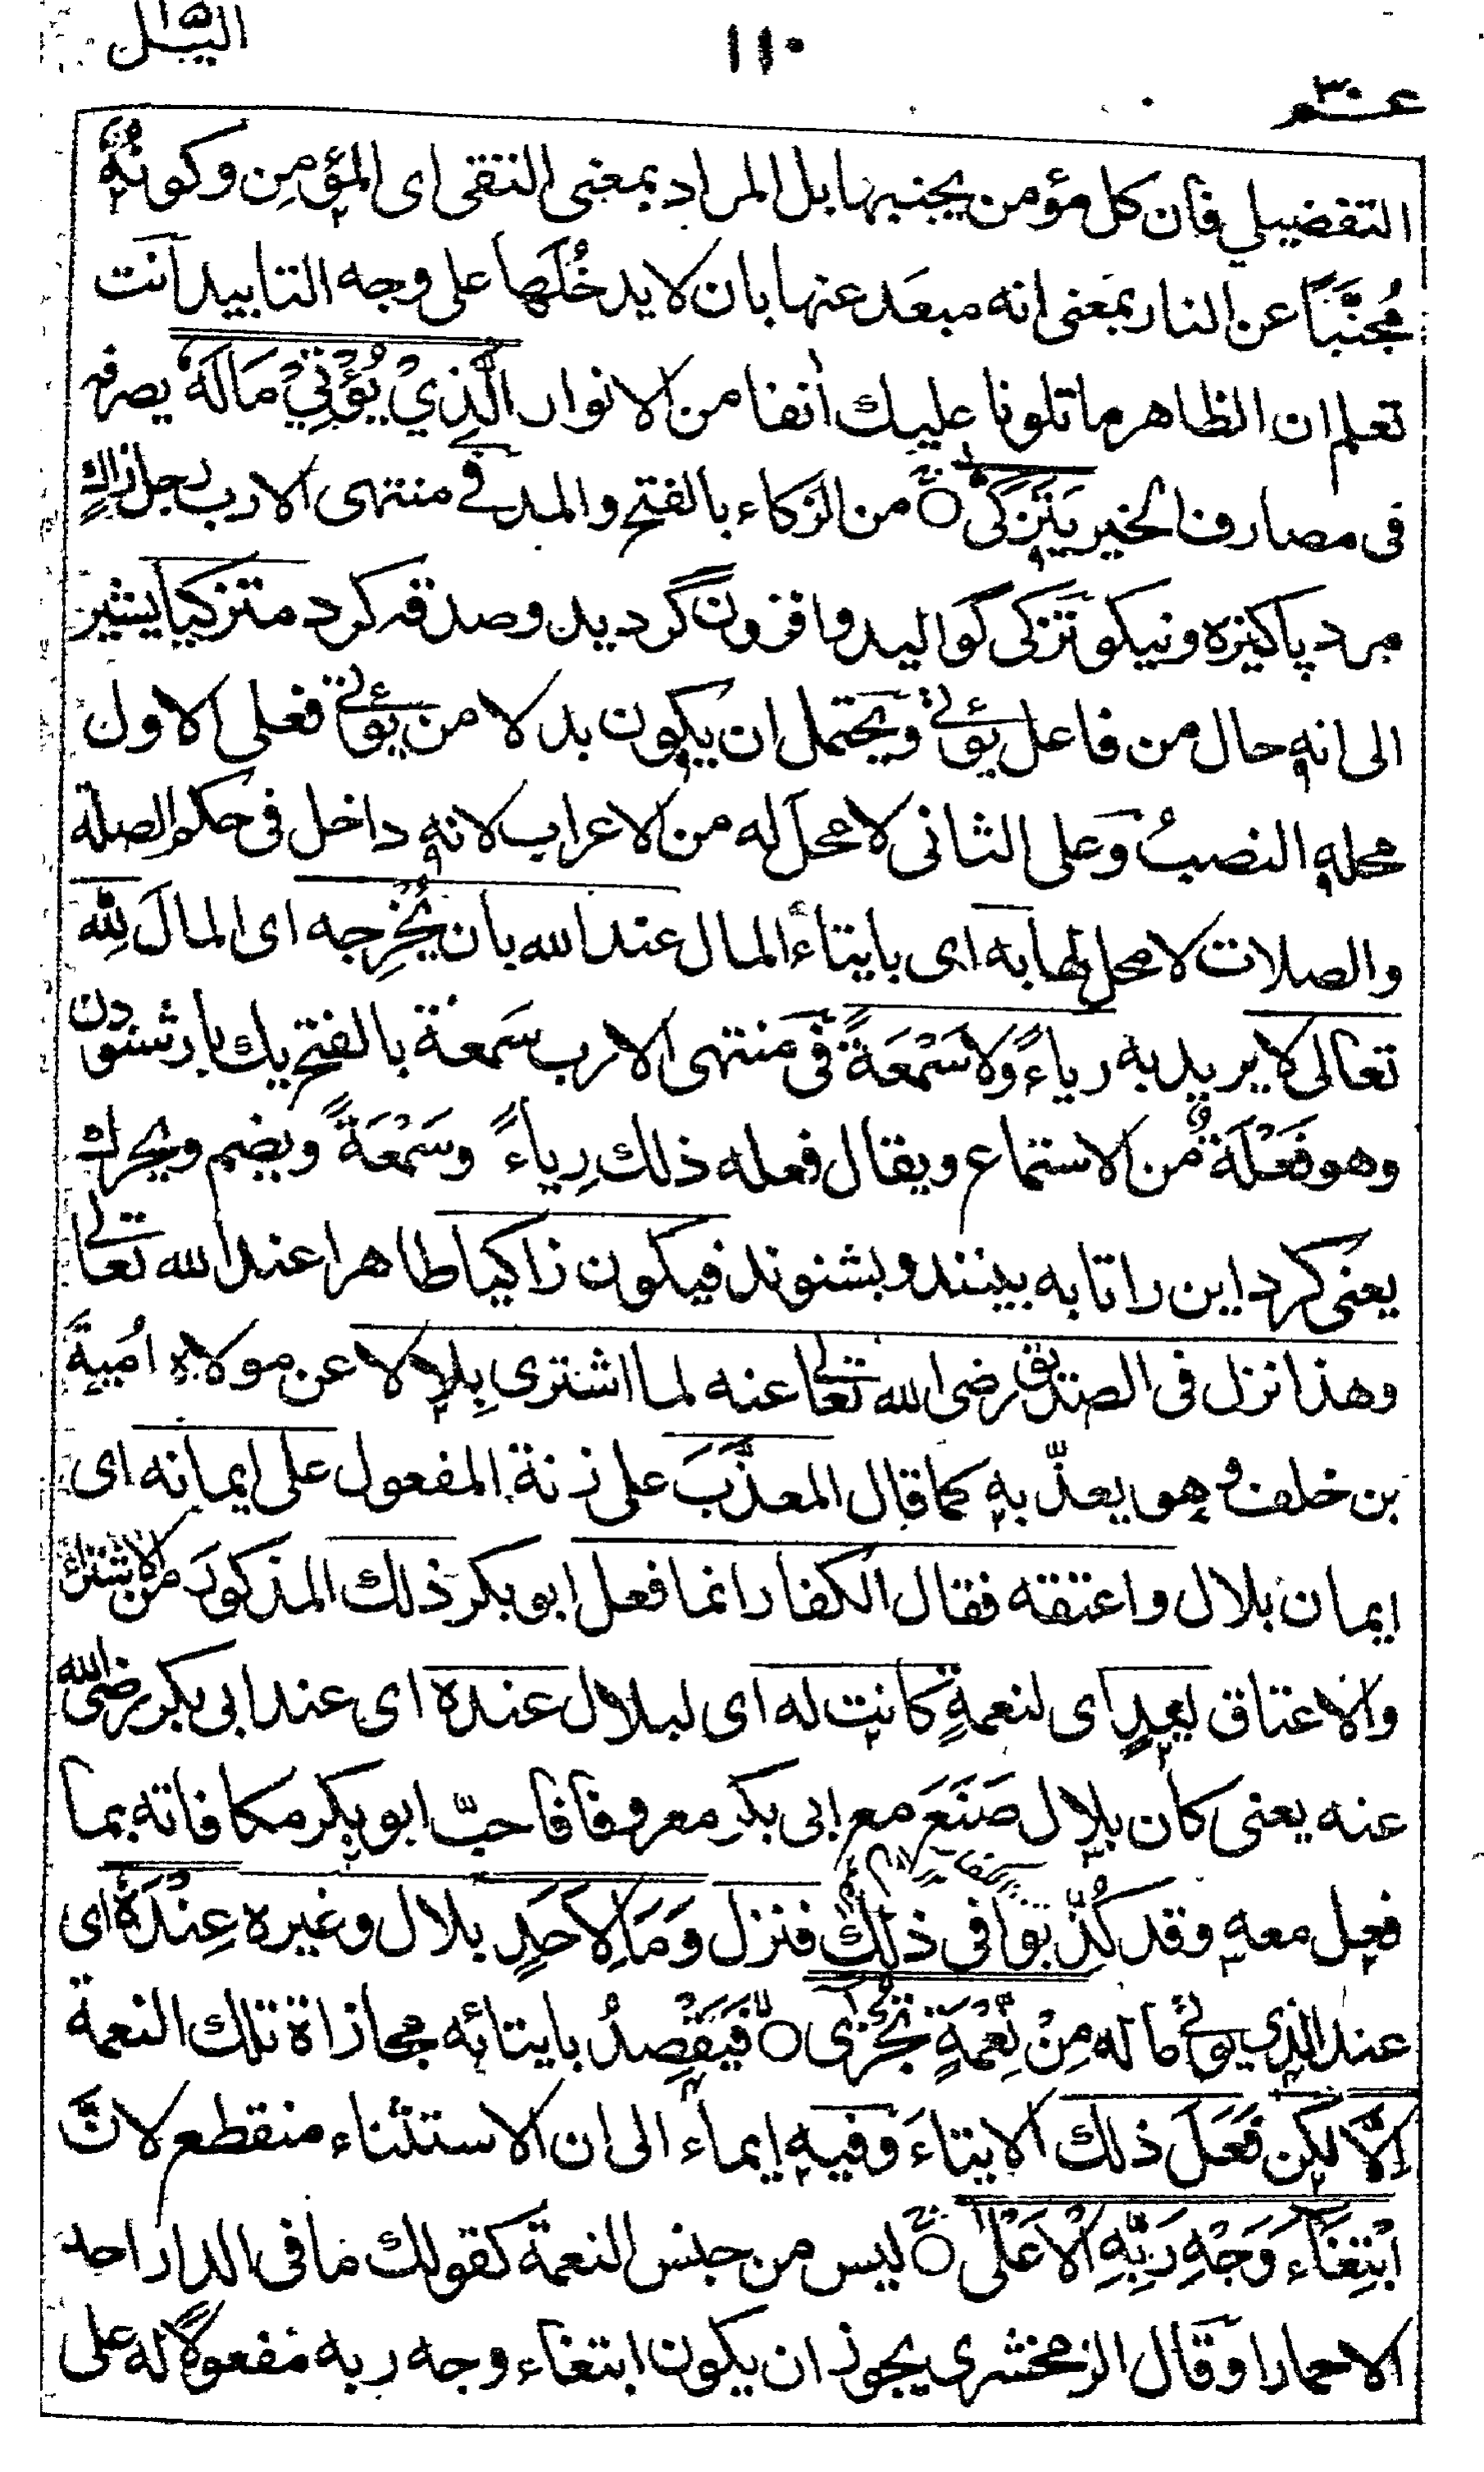 اليل
١١٠
عم ٣٠
التفضيلي فان كل مؤمن يجنبها بل المراد بمعنى التقى اى المؤمن وكونه
مُجنَّبًا عن النار بمعنى انه مبعَد عنها بان لا يدخُلَها على وجه التابيد انت
تعلم ان الظاهر ما تلونا عليك انفا من الانوار الَّذِيْ يُؤْتِيْ مَالَهٗ يصرفه
فى مصارف الخير يَتَزَكّٰى ○ من الزكاء بالفتح والمد فى منتهى الارب رجل زاكٍ
مرد پاكيزه ونيكو تزكى گواليد وافزون گرديد وصدقه كرد متزكيا يشير
الى انه حال من فاعل يؤتى ويحتمل ان يكون بدلا من يؤتى فعلى الاول
محله النصبُ وعلى الثانى لا محل له من الاعراب لانه داخل فى حكم الصلة
والصلات لا محل لها به اى بايتاء المال عند الله بان يُخرِجه اى المالَ لِله
تعالى لا يريد به رياءً ولا سَمْعَةً فى منتهى الارب سَمعة بالفتح يك بار شنودن
وهو فَعْلَة من الاستماع ويقال فعله ذلك رِياءً وسَمْعَةً ويضم ويحرك
يعنى كرد اين را تا به بينند وبشنوند فيكون زاكيا طاهرا عند الله تعالى
وهذا نزل فى الصديق رضى الله تعالى عنه لما اشترى بِلالا عن مولاه اُميةَ
بن خلف وهو يعذّب به كما قال المعذَّبَ على زنة المفعول على ايمانه اى
ايمان بلال واعتقه فقال الكفار انما فعل ابو بكر ذلك المذكورَ من الاشتراء
والاعتاق ليَدٍ اى لنعمةٍ كانت له اى لبلال عنده اى عند ابى بكر رضى الله
عنه يعنى كان بلال صَنَعَ مع ابى بكر معروفا فاحبّ ابو بكر مكافاته بما
فعل معه وقد كُذِّبوا فى ذلك فنزل وَمَا لِاَحَدٍ بلال وغيره عِنْدَهٗ اى
عند الذى يؤتى ماله مِنْ نِّعْمَةٍ تُجْزٰى ○ فيَقصِدُ بايتائه مجازاة تلك النعمة
اِلَّا لكن فَعَلَ ذلك الايتاءَ وفيه ايماء الى ان الاستثناء منقطع لانَّ
ابْتِغَآءَ وَجْهِ رَبِّهِ الْاَعْلٰى ○ ليس من جنس النعمة كقولك ما فى الدار احد
الا حمارا وقال الزمخشرى يجوز ان يكون ابتغاء وجه ربه مفعولا له على